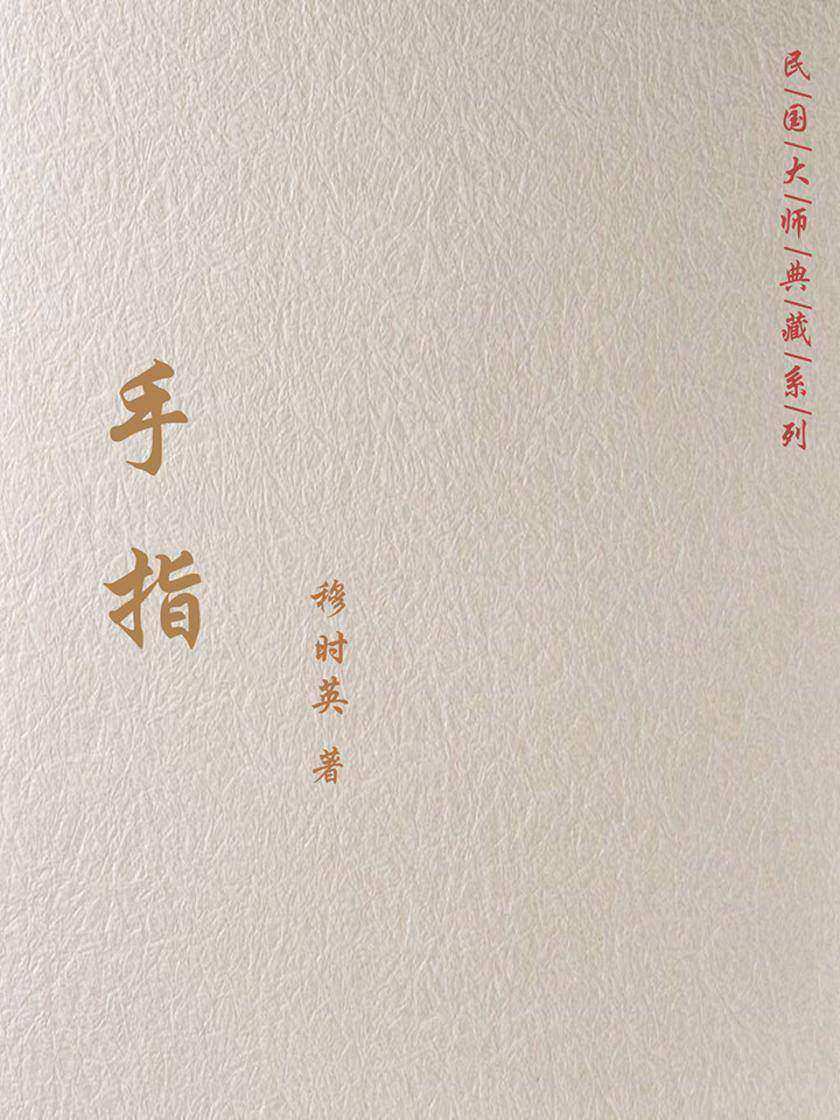 民/国/大/师/典/藏/系/列
手指
穆时英 著